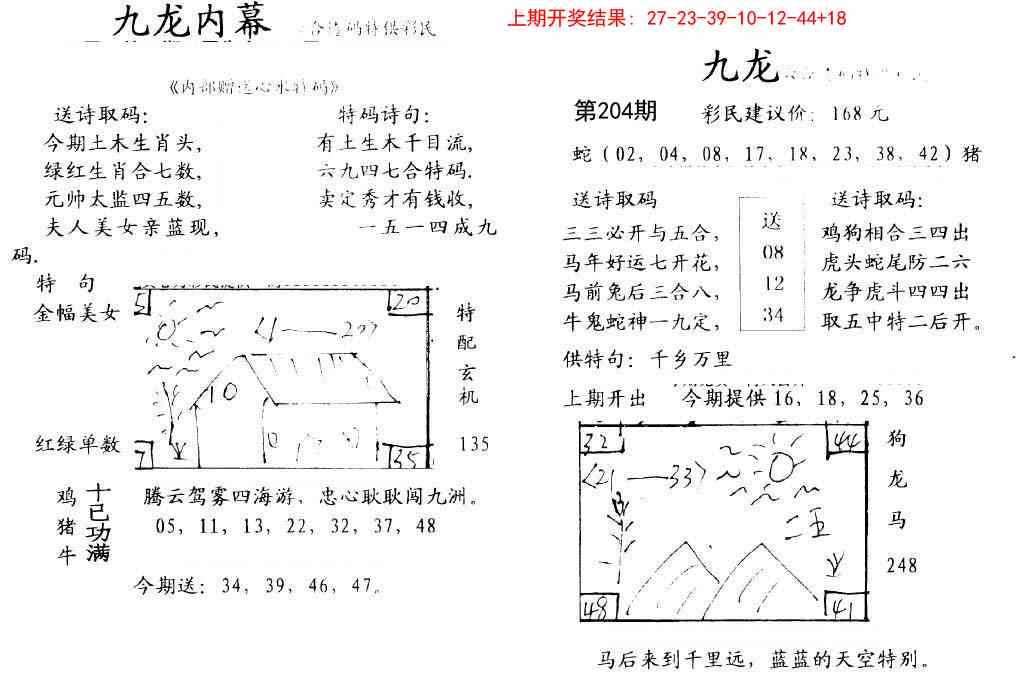 九龙内幕
码特供彩民
上期开奖结果：27-23-39-10-12-44+18
《内部赠送心水特码》
送诗取码：
今期土木生肖头，
绿红生肖合七数，
元帅太监四五数，
夫人美女亲蓝现，
特码诗句：
有土生木千目流，
六九四七合特码.
卖定秀才有钱收，
一五一四成九
码.
特 句
金幅美女
红绿单数
5
20
〈1——20〉
10
7
35
特
配
玄
机
135
鸡
猪
牛
十已功满
腾云驾雾四海游、忠心耿耿闯九洲。
05，11，13，22，32，37，48
今期送：34，39，46，47。
九龙
第204期
彩民建议价：168元
蛇（02、04、08、17、18、23、38、42）猪
送诗取码
三三必开与五合，
马年好运七开花，
马前兔后三合八，
牛鬼蛇神一九定，
送
08
12
34
送诗取码：
鸡狗相合三四出
虎头蛇尾防二六
龙争虎斗四四出
取五中特二后开。
供特句：千乡万里
上期开出 今期提供16，18，25，36
32
44
〈21——33〉
二五
48
41
狗
龙
马
248
马后来到千里远，蓝蓝的天空特别。